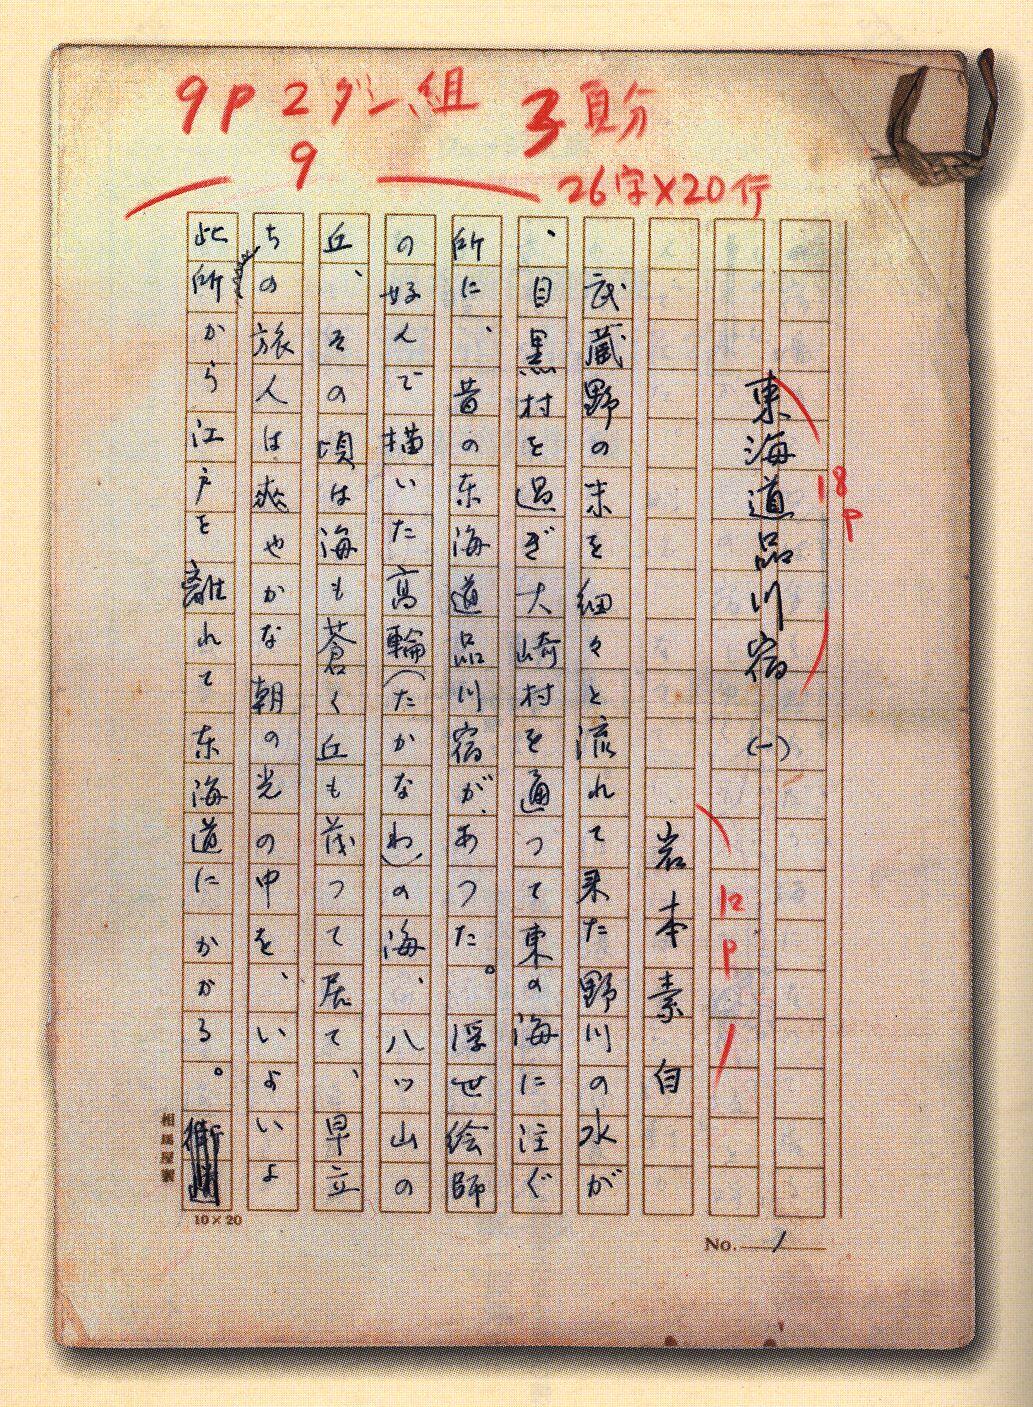 9p 2ダン組 3頁分
9
26字×20行
東海道品川宿(一)
18P
岩本素白
12P
武蔵野の末を細々と流れて来た野川の水が
、目黒村を過ぎ大崎村を通つて東の海に注ぐ
所に、昔の东海道品川宿が、あつた。浮世絵師
の好んで描いた高輪(たかなわ)の海、八ツ山の
丘、その頃は海も蒼く丘も茂つて居て、早立
ちの旅人は爽やかな朝の光の中を、いよいよ
此所から江戸を離れて东海道にかかる。
相馬屋製
10×20
No. 1